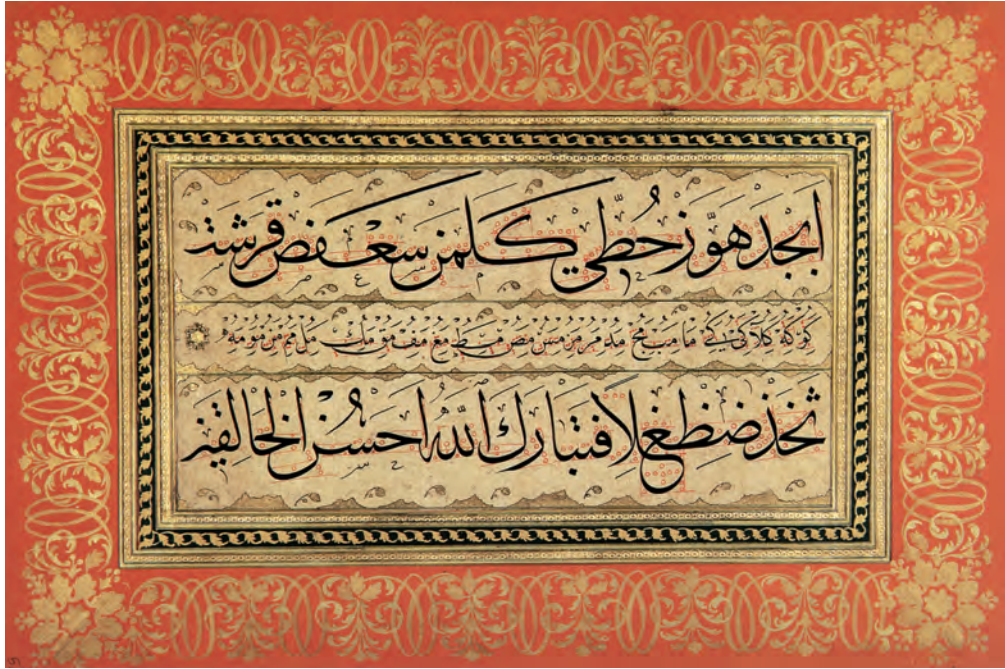 ابجد هوز حطي كلمن سعفص قرشت
كو كه كلا كي كے ما مب مج مد مر من مس مص مط مع مف مق مك مل مم من مو مه
ثخذ ضظغلا فتبارك الله احسن الخالقين